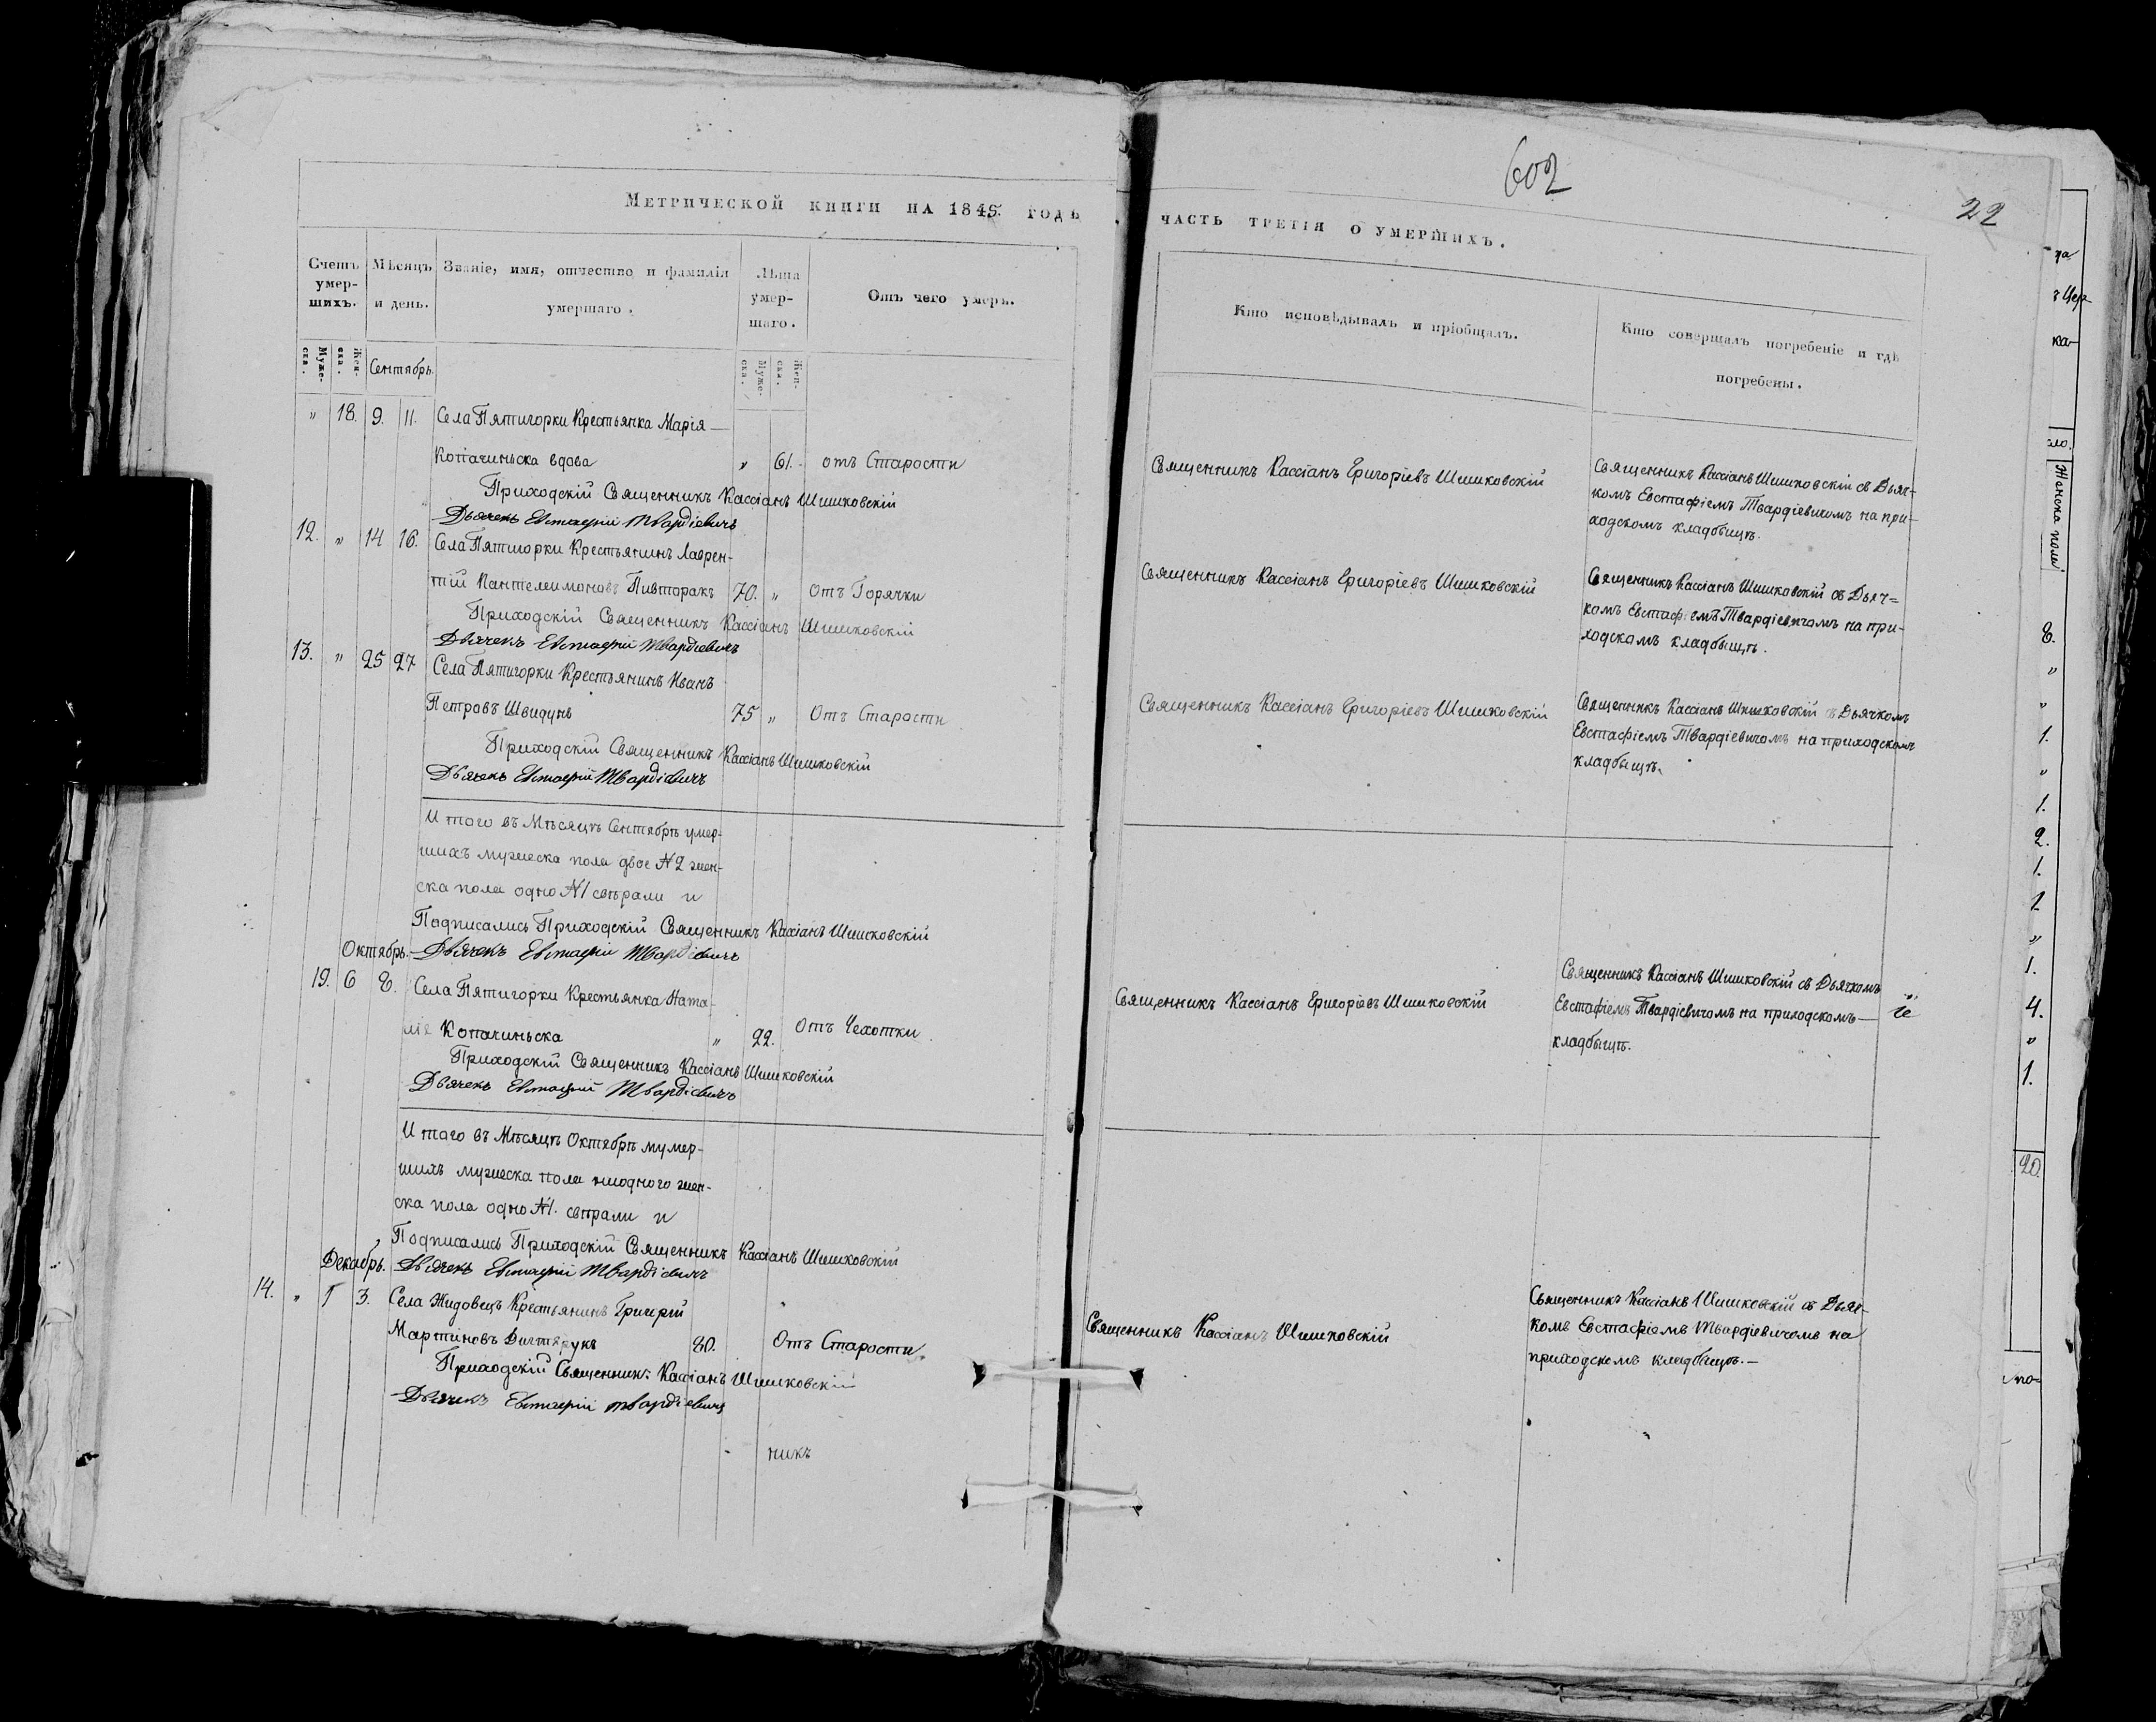 Метрической книги на 1845. годъ
Счетъ умер-шихъ.
Мѣсяцъ и день.
Званіе, имя, отчество и фамилія
умершаго.
Лѣта умер-шаго.
Отъ чего умеръ.
Муже-ска.
Жен-ска.
Сентябрь.
Муже-ска.
Жен-ска.
" 18. 9. 11. Села Пятигорки Крестьянка Марія —
Копачиньска вдова " 61. отъ Старости
Приходскій Священникъ Кассіанъ Шишковскій
Дьячекъ Евстафій Твардіевичъ
12. " 14 16. Села Пятигорки Крестьянинъ Лаврен-
тій Пантелеимоновъ Пивторакъ 70. " Отъ Горячки
Приходскій Священникъ Кассіанъ Шишковскій
Дьячекъ Евстафій Твардіевичъ
13. " 25 27 Села Пятигорки Крестьянинъ Иванъ
Петровъ Швидунъ 75 " Отъ Старости
Приходскій Священникъ Кассіанъ Шишковскій
Дьячекъ Евстафій Твардіевичъ
Итого въ Мѣсяцѣ Сентябрѣ умер-
шихъ мужеска пола двое № 2 жен-
ска пола одно № 1 свѣрали и
Подписались Приходскій Священникъ Кассіанъ Шишковскій
Октябрь. Дьячекъ Евстафій Твардіевичъ
19. 6 8. Села Пятигорки Крестьянка Ната-
лія Копачиньска " 22. Отъ Чехотки
Приходскій Священникъ Кассіанъ Шишковскій
Дьячекъ Евстафій Твардіевичъ
Итого въ Мѣсяцѣ Октябрѣ мумер-
шихъ мужеска пола ниодного жен-
ска пола одно № 1. свѣрали и
Подписались Приходскій Священникъ Кассіанъ Шишковскій
Декабрь. Дьячекъ Евстафій Твардіевичъ
14. " 1 3. Села Жидовецъ Крестьянинъ Григорій
Мартиновъ 80. Отъ Старости
Приходскій Священникъ Кассіанъ Шишковскій
Дьячекъ Евстафій Твардіевичъ
никъ
602
22
часть третія о умершихъ.
Кто исповѣдывалъ и пріобщалъ.
Кто совершалъ погребеніе и гдѣ
погребены.
Священникъ Кассіанъ Григоріевъ Шишковскій
Священникъ Кассіанъ Шишковскій съ Дьяч-
комъ Евстафіемъ Твардіевичомъ на при-
ходскомъ кладбищѣ.
Священникъ Кассіанъ Григоріевъ Шишковскій
Священникъ Кассіанъ Шишковскій съ Дьяч=
комъ Евстафіемъ Твардіевичомъ на при-
ходскомъ кладбищѣ.
Священникъ Кассіанъ Григоріевъ Шишковскій
Священникъ Кассіанъ Шишковскій съ Дьячкомъ
Евстафіемъ Твардіевичомъ на приходскомъ
кладбищѣ.
Священникъ Кассіанъ Григоріевъ Шишковскій
Священникъ Кассіанъ Шишковскій съ Дьячкомъ
Евстафіемъ Твардіевичомъ на приходскомъ —
кладбищѣ.
Священникъ Кассіанъ Шишковскій
Священникъ Кассіанъ Шишковскій съ Дьяч-
комъ Евстафіемъ Твардіевичомъ на
приходскомъ кладбищѣ. —
Женска пола
8.
"
"
1.
"
1.
2.
1.
1
"
1.
4.
"
1.
20.